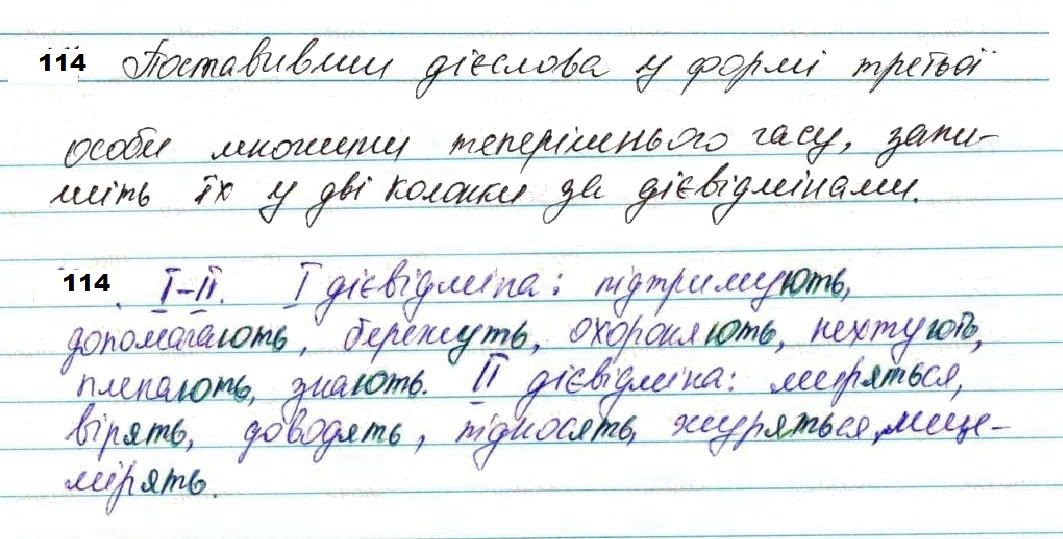 114 Поставивши дієслова у формі третьої
особи множини теперішнього часу, запи-
шіть їх у дві колонки за дієвідмінами.
114. І-ІІ. І дієвідміна: підтримують,
допомагають, бережуть, охороняють, нехтують,
плекають, знають. ІІ дієвідміна: миряться,
вірять, доводять, підносять, журяться, лице-
мірять.